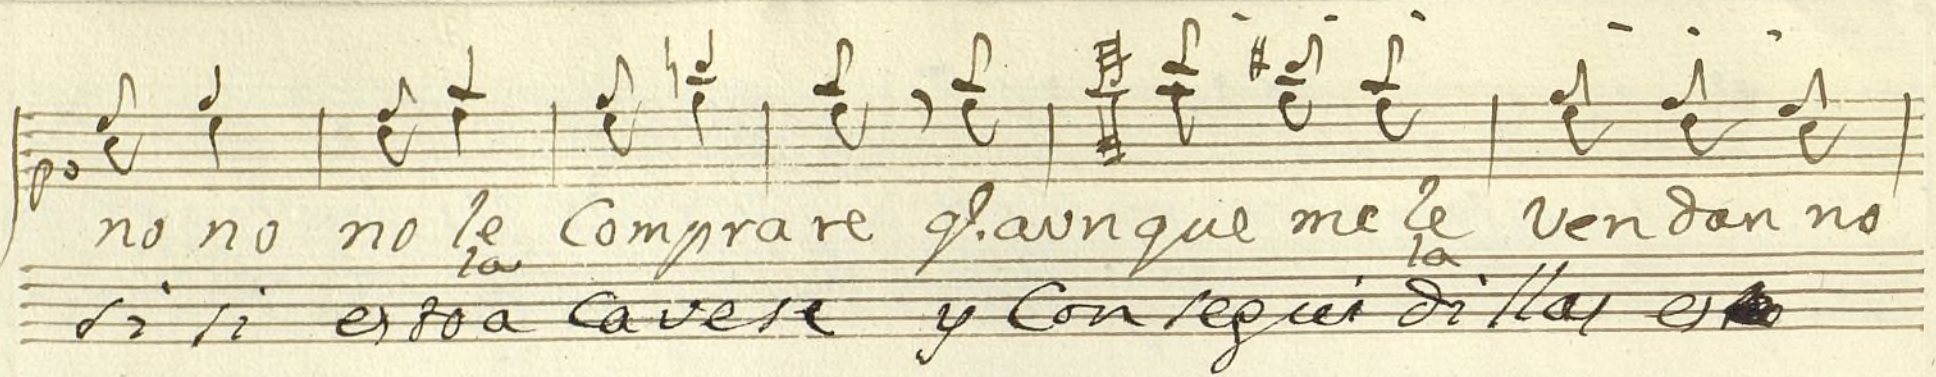 po
no no no le Comprare q.e aunque me le vendan no
la la
si si esto a Cavese y Con segui dillas